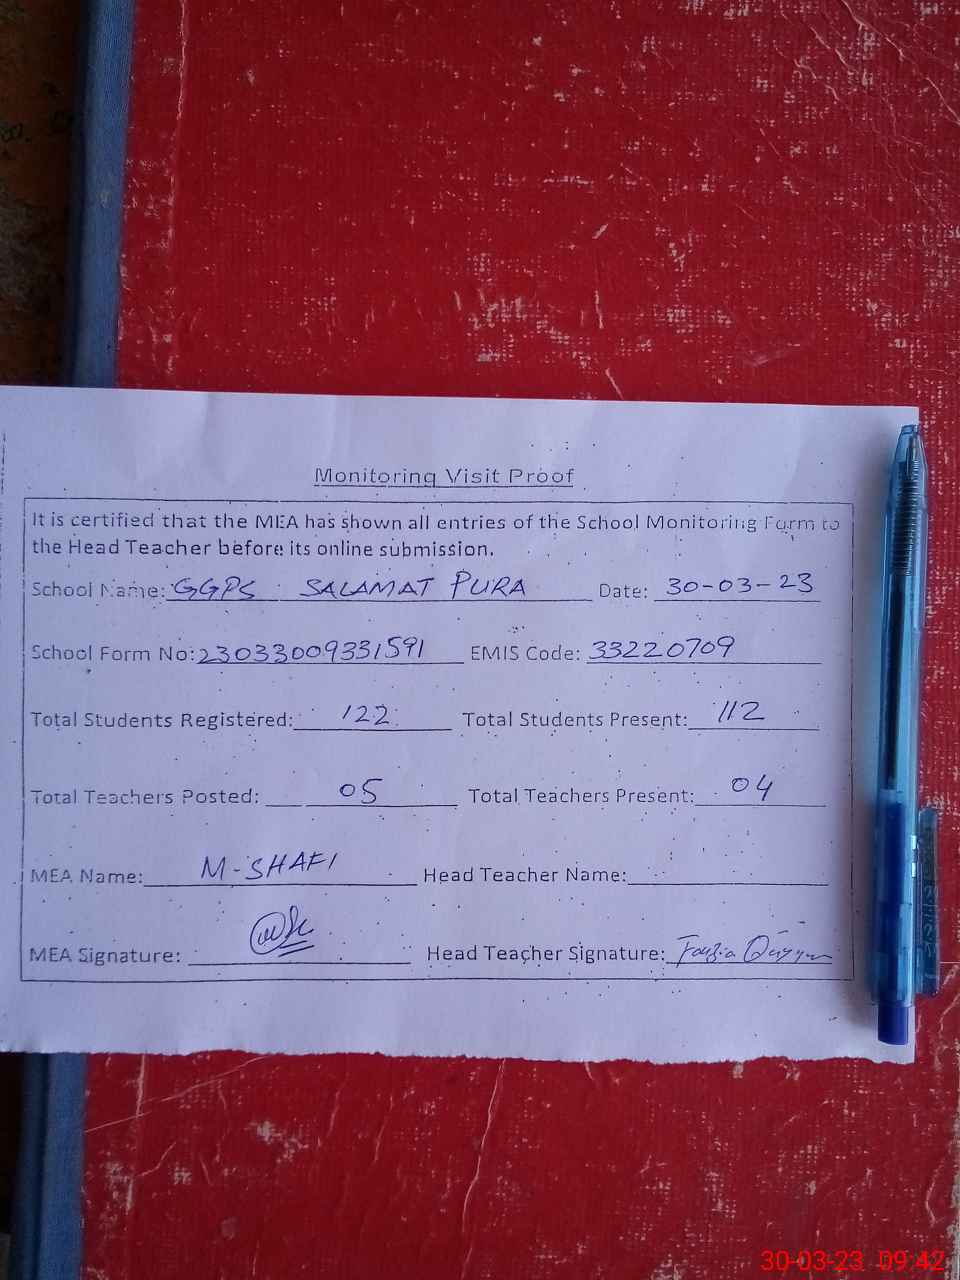 Monitoring Visit Proof
It is certified that the MEA has shown all entries of the School Monitoring Form to
the Head Teacher before its online submission.
School Name: GGPS SALAMAT PURA Date: 30-03-23
School Form No: 23033009331591 EMIS Code: 33220709
Total Students Registered: 122 Total Students Present: 112
Total Teachers Posted: 05 Total Teachers Present: 04
MEA Name: M-SHAFI Head Teacher Name:
MEA Signature: Head Teacher Signature: Fouzia
30-03-23 09:42